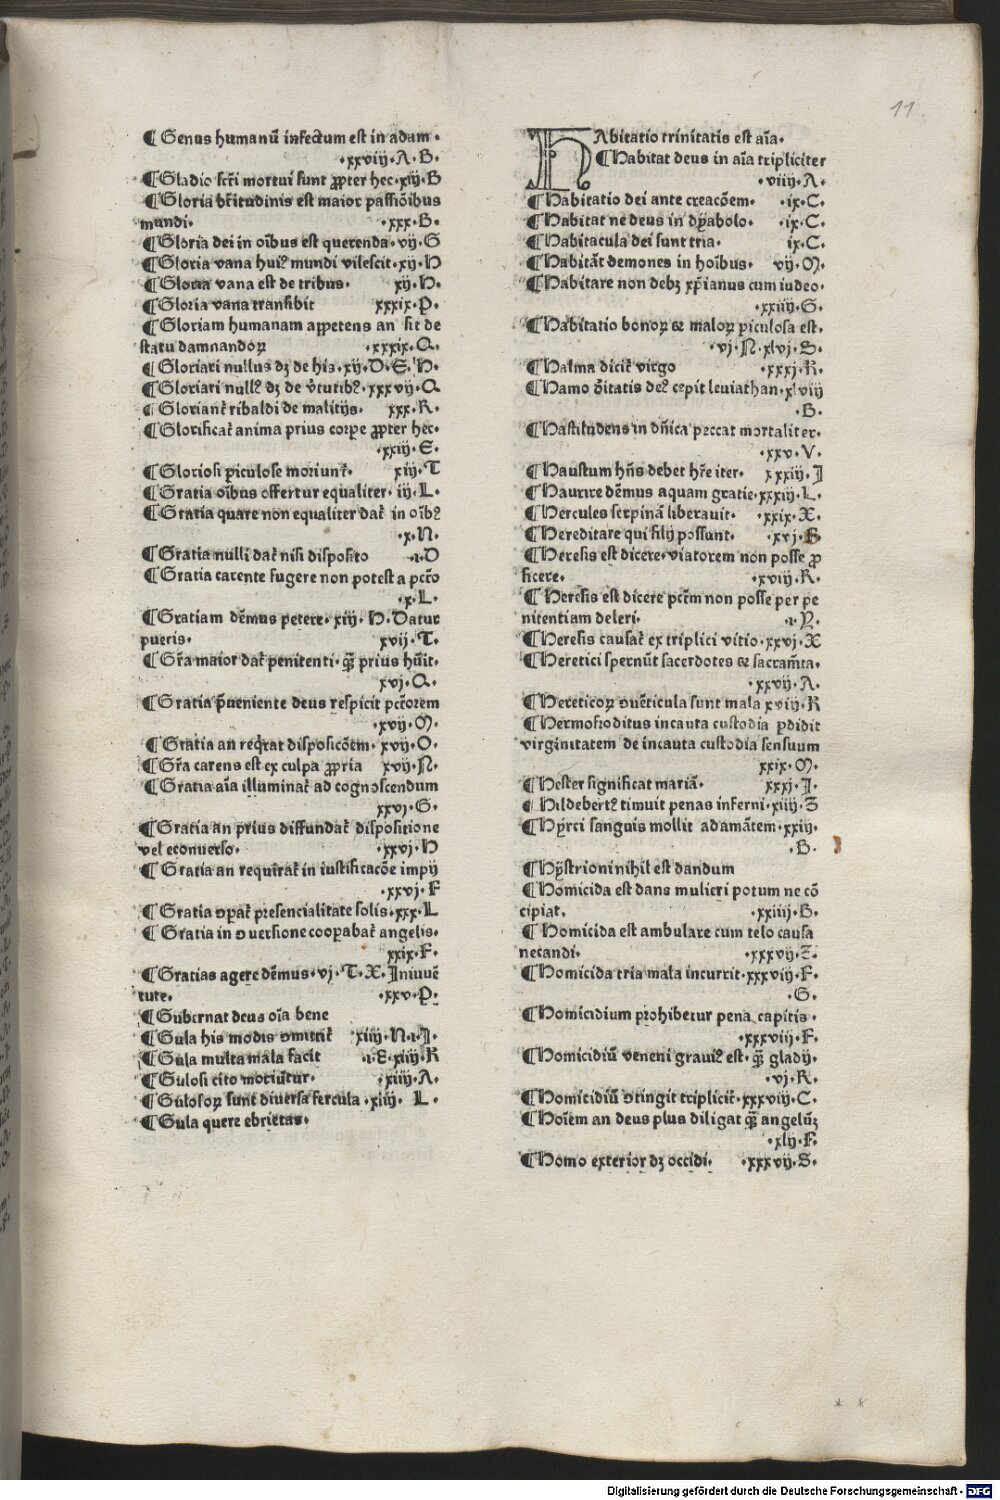 11
¶ Genus humanū infectum est in adam·
·xxviij·A·B·
¶ Gladio sct̄i mortui sunt ꝓpter hec·xiij·B
¶ Gloria bt̄itudinis est maior passiōibus
mundi· ·xxx·B·
¶ Gloria dei in oībus est querenda·vij·G
¶ Gloria vana huiꝰ mundi vilescit·xij·H
¶ Gloria vana est de tribus· xij·H·
¶ Gloria vana transibit xxxix·P·
¶ Gloriam humanam appetens an sit de
statu damnandoꝝ ·xxxix·Q·
¶ Gloriari nullus dꝫ de his·xij·D·E·H·
¶ Gloriari nullꝰ dꝫ de v̄tutibꝰ·xxxvij·Q
¶ Gloriant᷑ ribaldi de malitijs· xxx·R·
¶ Glorificat᷑ anima prius corpe ꝓpter hec·
·xxiij·E·
¶ Gloriosi piculose moriunt᷑· xiij·T
¶ Gratia oībus offertur equaliter·iij·L·
¶ Gratia quare non equaliter dat᷑ in oībꝰ
·x·N·
¶ Gratia nulli dat᷑ nisi disposito ·i·D
¶ Gratia carente fugere non potest a pctō
·x·L·
¶ Gratiam dēmus petere·xiij·H·Datur
pueris· xvij·T·
¶ Gr̄a maior dat᷑ penitenti·q̄ꝫ prius hūit·
xvj·Q·
¶ Gratia p̄ueniente deus respicit pctōrem
·xvij·M·
¶ Gratia an req̄rat disposicōem·xvij·O·
¶ Gr̄a carens est ex culpa ꝓpria xvij·N·
¶ Gratia aīa illuminat᷑ ad cognoscendum
xxvj·G·
¶ Gratia an prius diffundat᷑ dispositione
vel econuerso· ·xxvj·H
¶ Gratia an requirat᷑ in iustificacōe impij
·xxvj·F
¶ Gratia ꝯpat᷑ presencialitate solis·xxx·L
¶ Gratia in ꝯuersione coopabat᷑ angelis·
xxix·F·
¶ Gratias agere dēmus·vj·T·X·Iniuuē
tute· ·xxv·P·
¶ Gubernat deus oīa bene
¶ Gula his modis ꝯmittit᷑ xiiij·N·i·J·
¶ Gula multa mala facit ·i·E·xiiij·K
¶ Gulosi cito moriūtur· ·xiiij·A·
¶ Gulosoꝝ sunt diuersa fercula·xiiij· L·
¶ Gula quere ebrietas·
HAbitatio trinitatis est aīa·
¶ Habitat deus in aīa tripliciter
·viij·A·
¶ Habitatio dei ante creacōem· ·ix·C·
¶ Habitat ne deus in dyabolo· ·ix·C·
¶ Habitacula dei sunt tria· ix·C·
¶ Habitāt demones in hoībus· vij·M·
¶ Habitare non debꝫ xp̄ianus cum iudeo·
·xxiiij·G·
¶ Habitatio bonoꝝ ⁊ maloꝝ piculosa est·
·vj·N·xlvj·S·
¶ Halma dicit᷑ virgo ·xxxj·R·
¶ Hamo dītatis deꝰ cepit leuiathan·xlviij
·B·
¶ Hastiludens in dn̄ica peccat mortaliter·
·xxv·V·
¶ Haustum hn̄s debet hr̄e iter· xxxiij·J
¶ Haurire dēmus aquam gratie·xxxiij·L·
¶ Hercules serpinā liberauit· ·xxix·X·
¶ Hereditare qui filij possunt· ·xvj·B
¶ Heresis est dicere·viatorem non posse ꝓ
ficere· ·xviij·R·
¶ Heresis est dicere pctm̄ non posse per pe
nitentiam deleri· ·i·Y·
¶ Heresis causat᷑ ex triplici vitio·xxvj·X
¶ Heretici spernūt sacerdotes ⁊ sacram̄ta·
·xxvij·A·
¶ Hereticoꝝ ꝯuēticula sunt mala xviij·R
¶ Hermofroditus incauta custodia pdidit
virginitatem de incauta custodia sensuum
xxix·M·
¶ Hester significat mariā· xxxj·J·
¶ Hildebertꝰ timuit penas inferni·xiiij·Z
¶ Hyrci sanguis mollit adamātem·xxiij·
·B·
¶ Hystrioni nihil est dandum
¶ Homicida est dans mulieri potum ne cō
cipiat· ·xxiiij·B·
¶ Homicida est ambulare cum telo causa
necandi· ·xxxvij·Z·
¶ Homicida tria mala incurrit·xxxviij·F·
·G·
¶ Homicidium prohibetur pena capitis·
·xxxviij·F·
¶ Homicidiū veneni grauiꝰ est·q̄ꝫ gladij·
·vj·R·
¶ Homicidiū ꝯtingit triplicit᷑·xxxviij·C·
¶ Hoīem an deus plus diligat q̄ꝫ angelūꝫ
·xlij·F·
¶ Homo exterior dꝫ occidi· ·xxxvij·S·
* *
Digitalisierung gefördert durch die Deutsche Forschungsgemeinschaft - DFG